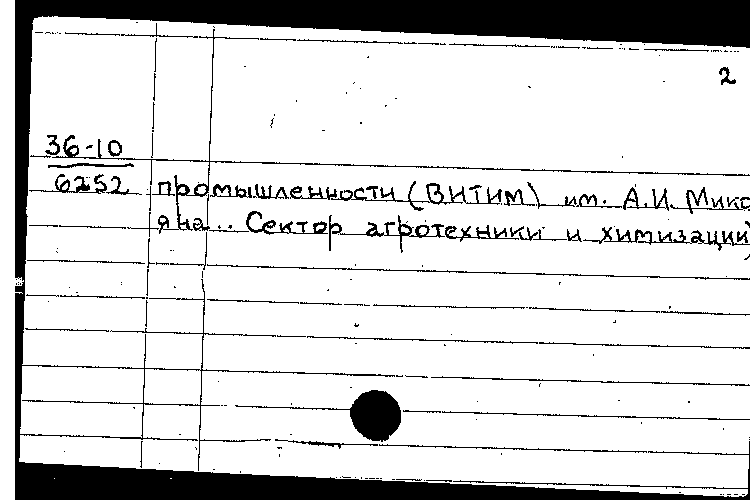 2
36-10
6252
промышленности (ВИТИМ) им. А.И. Мико
яна.. Сектор агротехники и химизации)